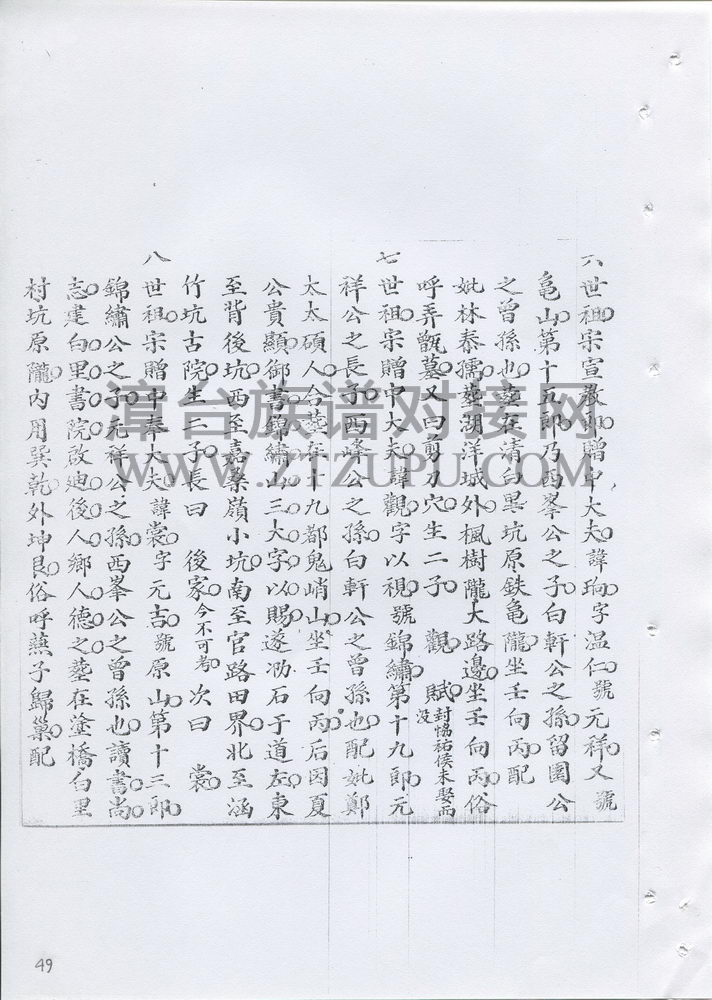 六世祖宗宣教郎贈中大夫諱珣字温仁號元祥又號
亀山第十五郎乃西峯公之子白軒公之孫留園公
之曾孫也葬在清白里坑原鉄亀隴坐壬向丙配
妣林泰孺葬湖洋城外楓樹隴大路邊坐壬向丙俗
呼弄甑墓又曰剪刀穴生二子 觀 賦封恊祐侯未娶而没
七世祖宗贈中大夫諱觀字以視號錦繡第十九郎元
祥公之長子西峰公之孫白軒公之曾孫也配妣鄭
太太碩人合葬在十九都鬼峭山坐壬向丙后因夏
公貴顯御書錦繡山三大字以賜遂勒石于道左東
至背後坑西至嘉桑嶺小坑南至官路田界北至涵
竹坑古院生二子長曰 後家今不可考次曰 裳
八世祖宗贈中奉大夫諱裳字元吉號原山第十三郎
錦繡公之子元祥公之孫西峯公之曾孫也讀書尚
志建白里書院啟迪後人鄉人德之葬在塗橋白里
村坑原隴内用巽乾外坤艮俗呼燕子歸巢配
漳台族谱对接网
WWW.ZTZUPU.COM
49